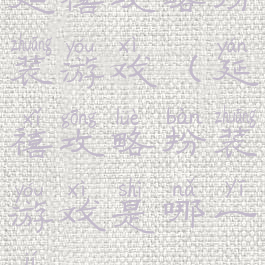 zhuāng yóu xì yán
装游戏（延
xǐ gōng lüè bàn zhuāng
禧攻略扮装
yóu xì shì nǎ yī
游戏是哪一